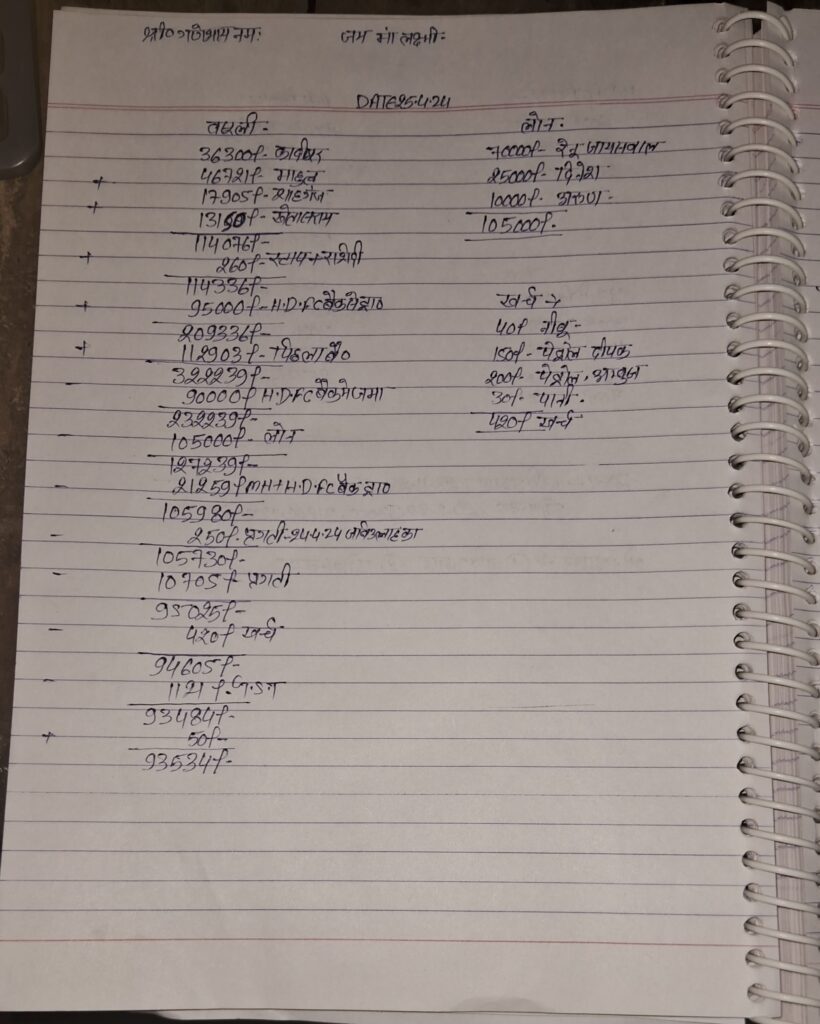 श्री० गणेशाय नमः जय माँ लक्ष्मीः
DATE 25.4.24
वसूली:-
36300/- कादीपुर
+ 46721/- माडल
+ 17905/- शाहगंज
13150/-
114076/-
+ 260/- स्टाम्प+रसीदी
114336/-
+ 95000/- H.D.FC बैंक से ड्रा०
209336/-
+ 112903/- पिछला बै०
322239/-
- 90000/- H.D.FC बैंक में जमा
232239/-
- 105000/- लोन
127239/-
- 21259/- MH+H.D.FC बैंक ड्रा०
105980/-
- 250/- प्रगती-24.4.24
105730/-
- 10705/- प्रगती
95025/-
- 420/- खर्च
94605/-
- 1121/- G.S.T
93484/-
+ 50/-
93534/-
लोन:-
70000/- रेनू जायसवाल
25000/- दिनेश
10000/- अरुण-
105000/-
खर्च →
40/- नींबू-
150/- पेट्रोल दीपक
200/- पेट्रोल,
30/- पानी.
420/- खर्च